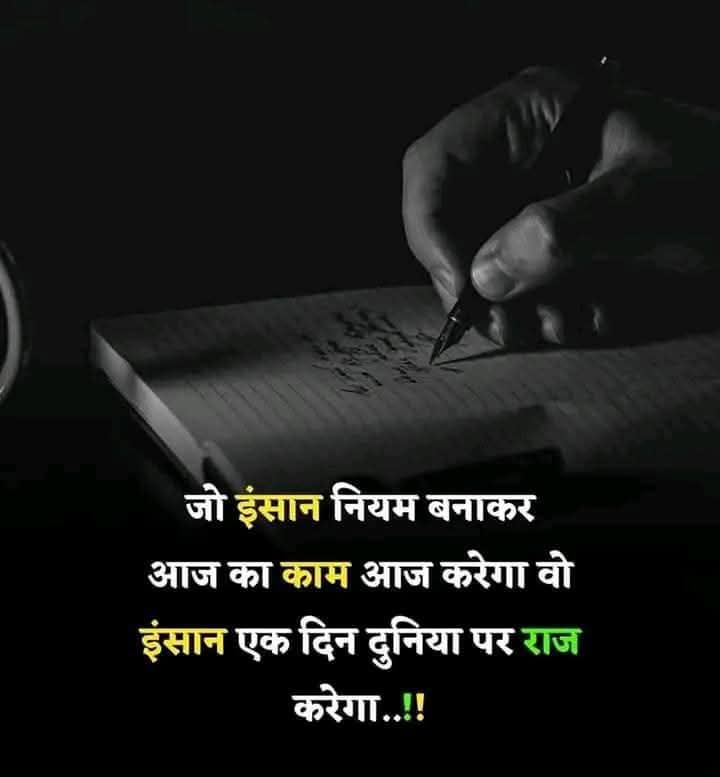 जो इंसान नियम बनाकर
आज का काम आज करेगा वो
इंसान एक दिन दुनिया पर राज
करेगा..!!